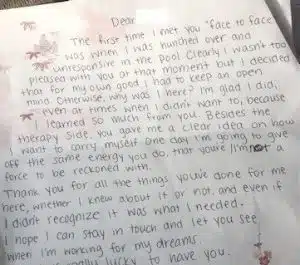 Dear
The first time I met you "face to face"
was when I was hundred over and
unresponsive in the pool. Clearly I wasn't too
pleased with you at that moment but I decided
that for my own good I had to keep an open
mind. Otherwise, why was I here? I'm glad I did,
even at times when I didn't want to, because
I learned so much from you. Besides the
therapy side, you gave me a clear idea on how
I want to carry myself one day. I'm going to give
off the same energy you do, that you're/I'm not a
force to be reckoned with.
Thank you for all the things you've done for me
here, whether I knew about it or not, and even if
I didn't recognize it was what I needed.
I hope I can stay in touch and let you see
when I'm working for my dreams
really lucky to have you.